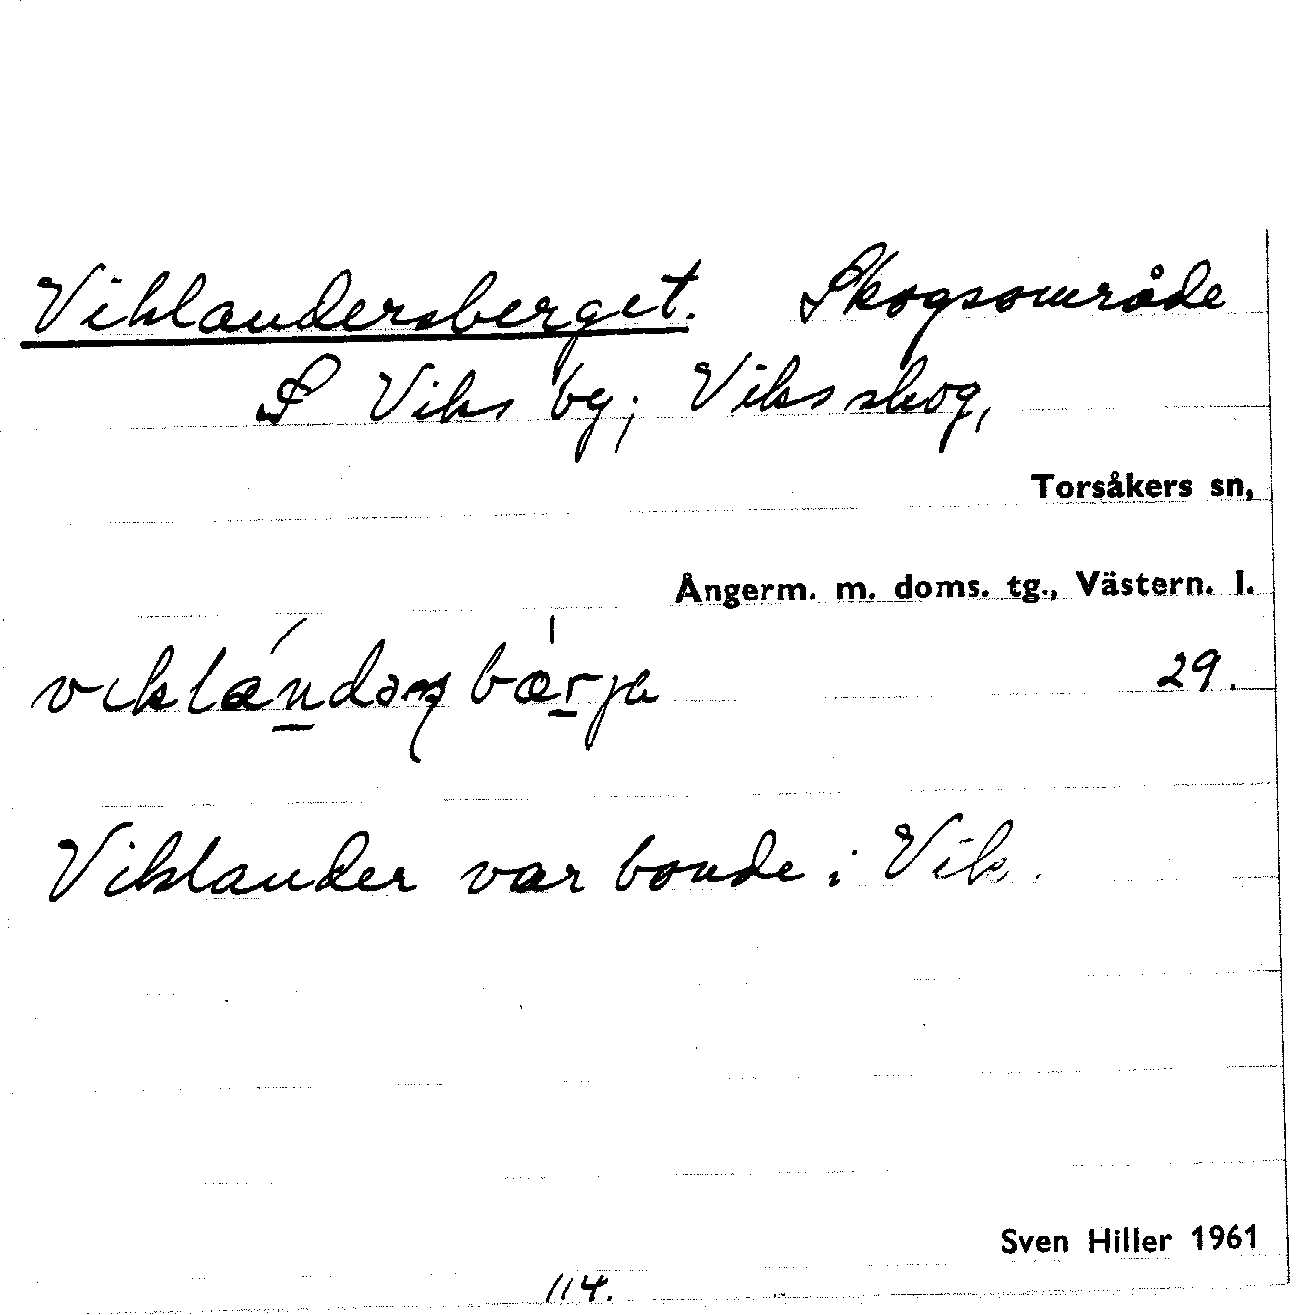 Viklandersberget. Skogsområde
S Viks by; Viksskog,
Torsåkers sn,
Ångerm. m. doms. tg., Västern. l.
29.
Viklander var bonde i Vik.
Sven Hiller 1961
114.